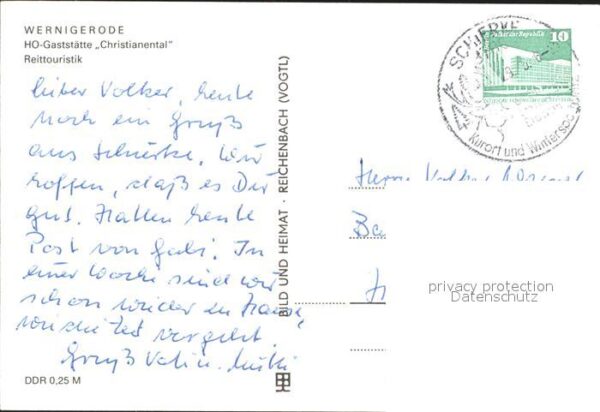 WERNIGERODE
HO-Gaststätte „Christianental"
Reittouristik
lieber Volker, heute
noch ein Gruß
aus Schierke. Wir
hoffen, daß es Dir
gut. Hatten heute
Post von Gabi. In
einer Woche sind wir
schon wieder zu Hause,
wie die Zeit vergeht.
Gruß Vati u. Mutti
DDR 0,25 M
BILD UND HEIMAT · REICHENBACH (VOGTL)
SCHIERKE
Kurort und Wintersport
10
Herrn Volker
Ba
H
privacy protection
Datenschutz